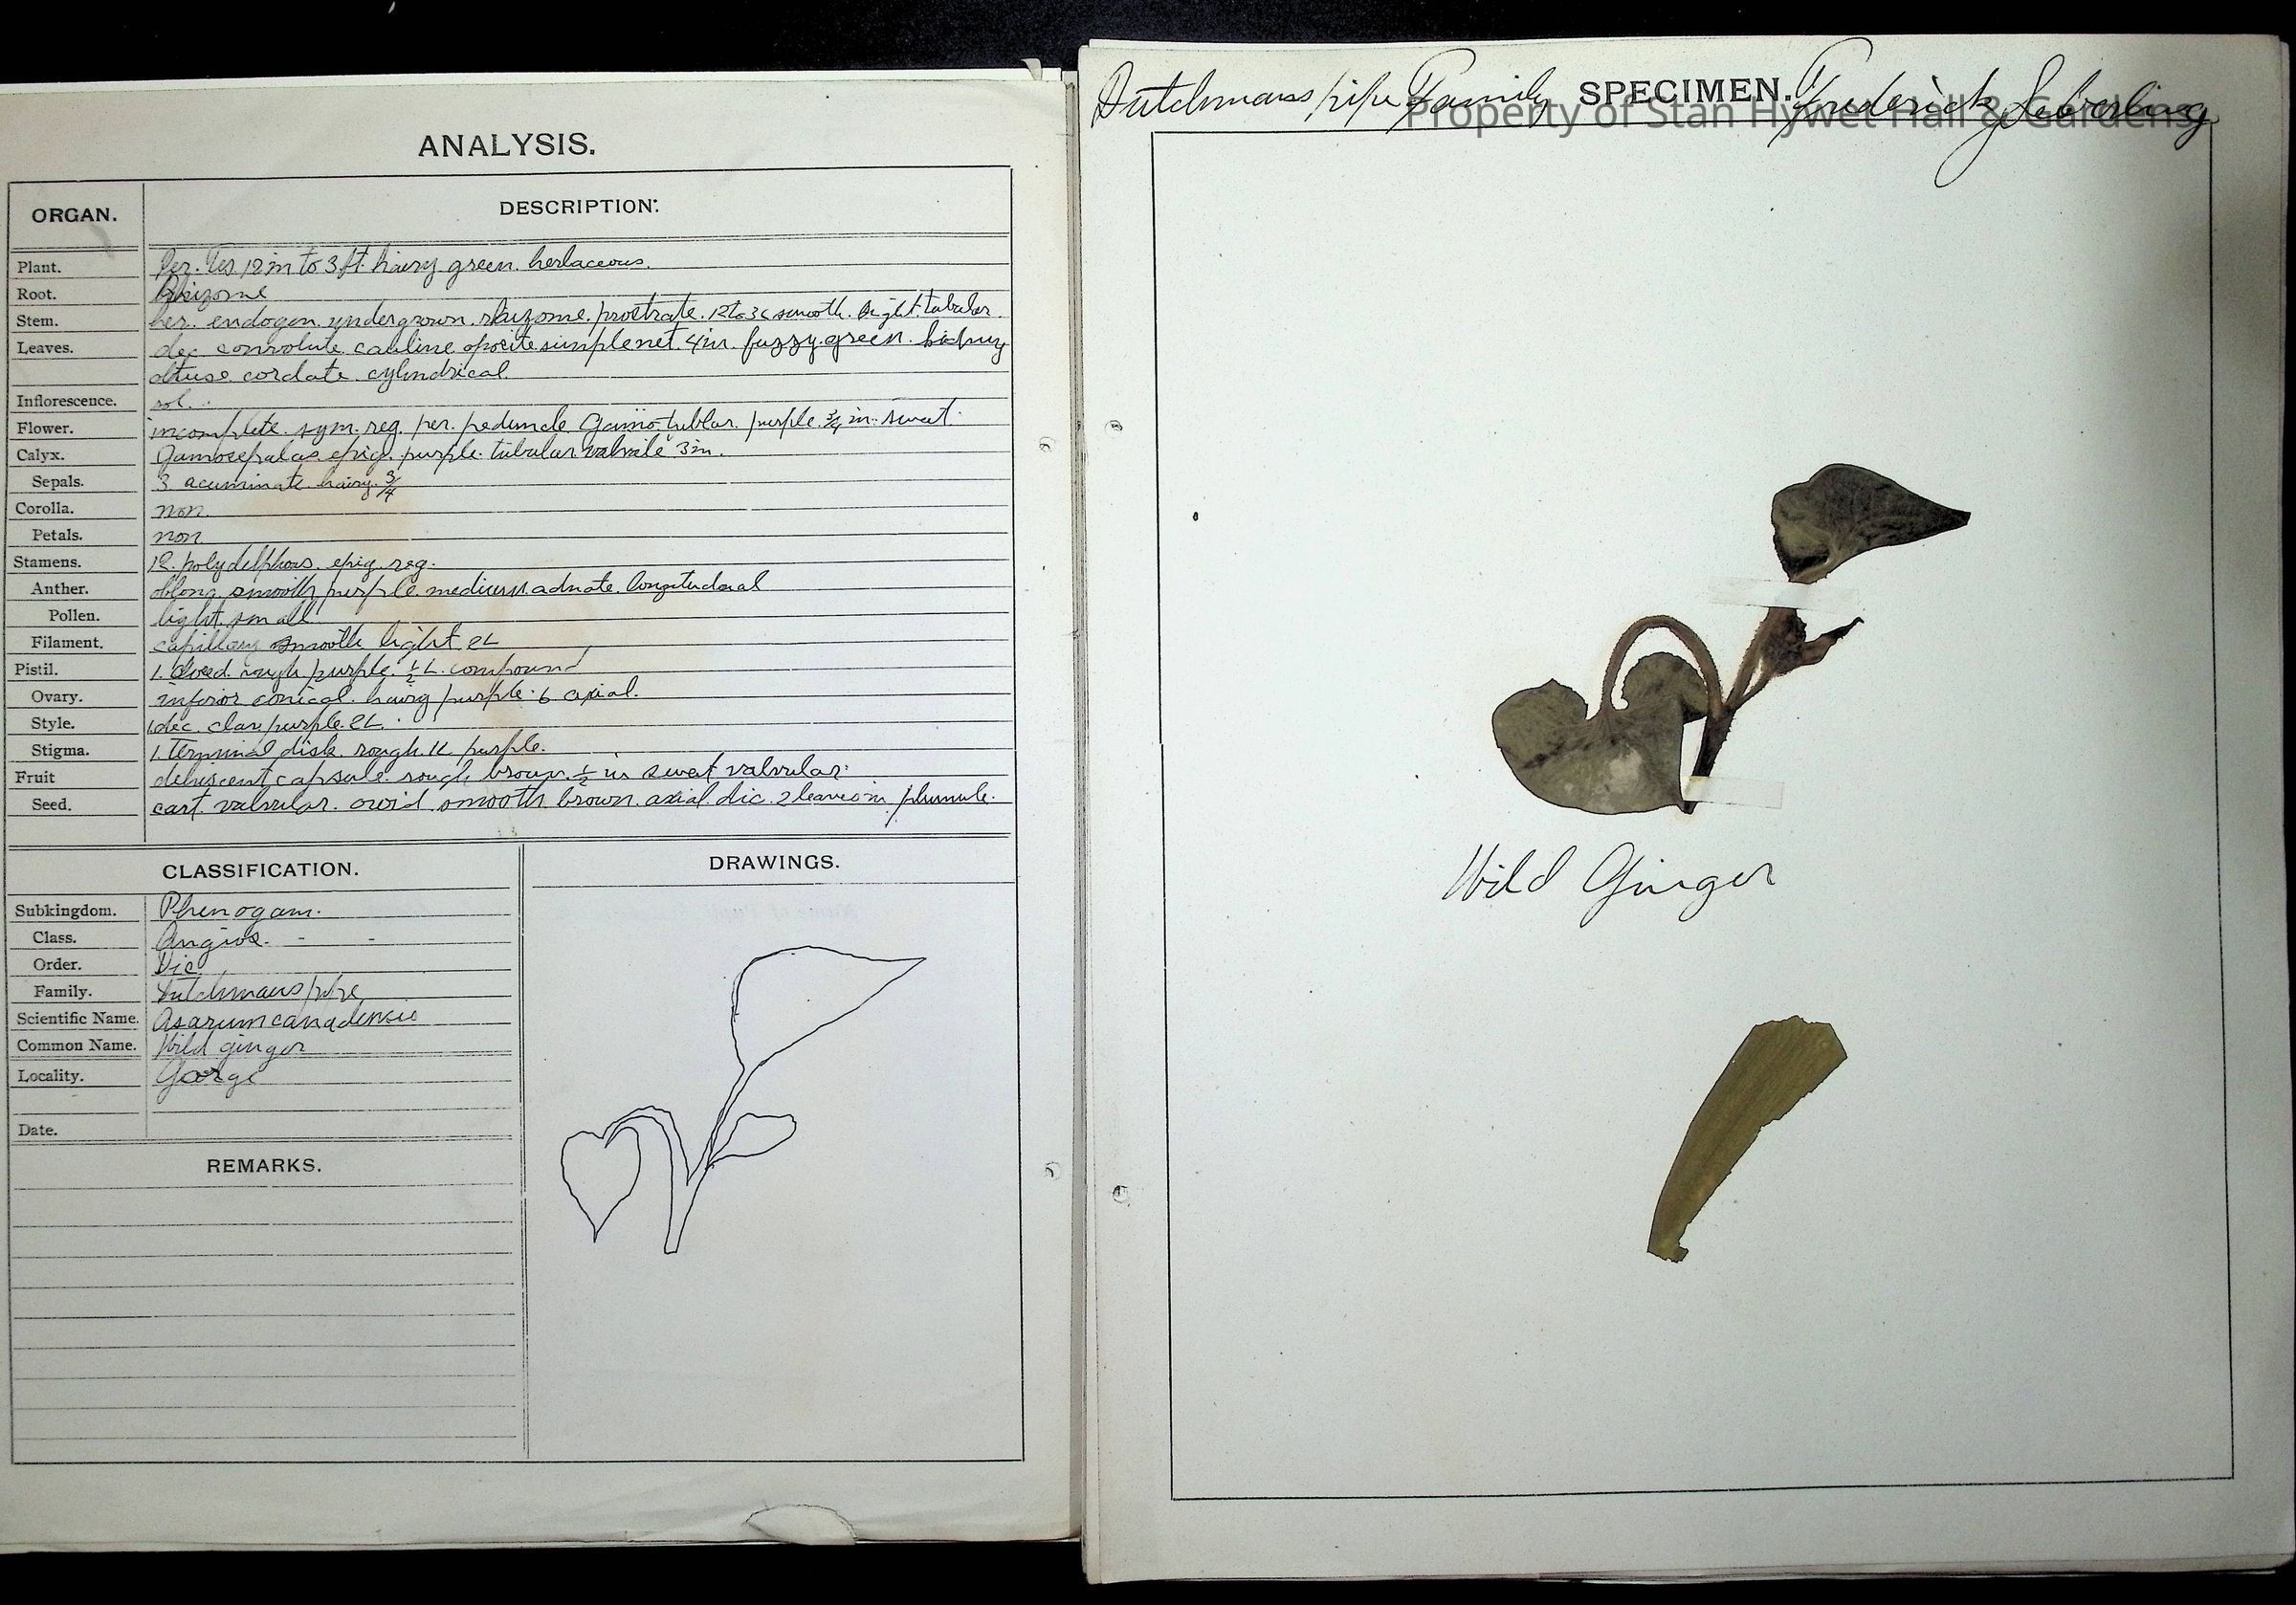 ANALYSIS.
ORGAN. DESCRIPTION:
Plant. Per. Ter 12 in to 3 ft. hairy green. herbaceous.
Root. Rhizome
Stem. her. endogen. undergrown. rhizome. prostrate. 12 to 36 smooth. light. tubular.
Leaves. dec convolute. cauline. oposite simple net. 4 in. fuzzy. green.
obtuse. cordate. cylindrical.
Inflorescence. sol.
Flower. incomplete. sym. reg. per. peduncle. Gamo. tublar. purple. 3/4 in. sweat.
Calyx. Gamosepalas. epig. purple. tubular. valvate 3 in.
Sepals. 3 acuminate. hairy. 3/4
Corolla. non.
Petals. non.
Stamens. 12. polydelphous. epig. reg.
Anther. oblong smooth purple. medium adnate. longitudnal
Pollen. light. small.
Filament. capillary smooth light 2L
Pistil. 1. rough. purple. 1/2 L. compound
Ovary. inferior conical. hairy purple. 6 axial.
Style. 1 dec. clav. purple. 2L.
Stigma. 1. Terminal disk. rough. 1L purple.
Fruit dehiscent capsule. rough brown. 1/2 in sweat valvular.
Seed. cart. valvular. ovoid. smooth brown. axial. dic. 2 leaves in plumule.
CLASSIFICATION. DRAWINGS.
Subkingdom. Phenogam.
Class. Angios.
Order. Dic
Family. Dutchmans pipe
Scientific Name. Asarum canadensis
Common Name. Wild ginger
Locality. Gorge
Date.
REMARKS.
Dutchmans pipe Family SPECIMEN. Frederick Seiberling
Property of Stan Hywet Hall & Gardens
Wild Ginger